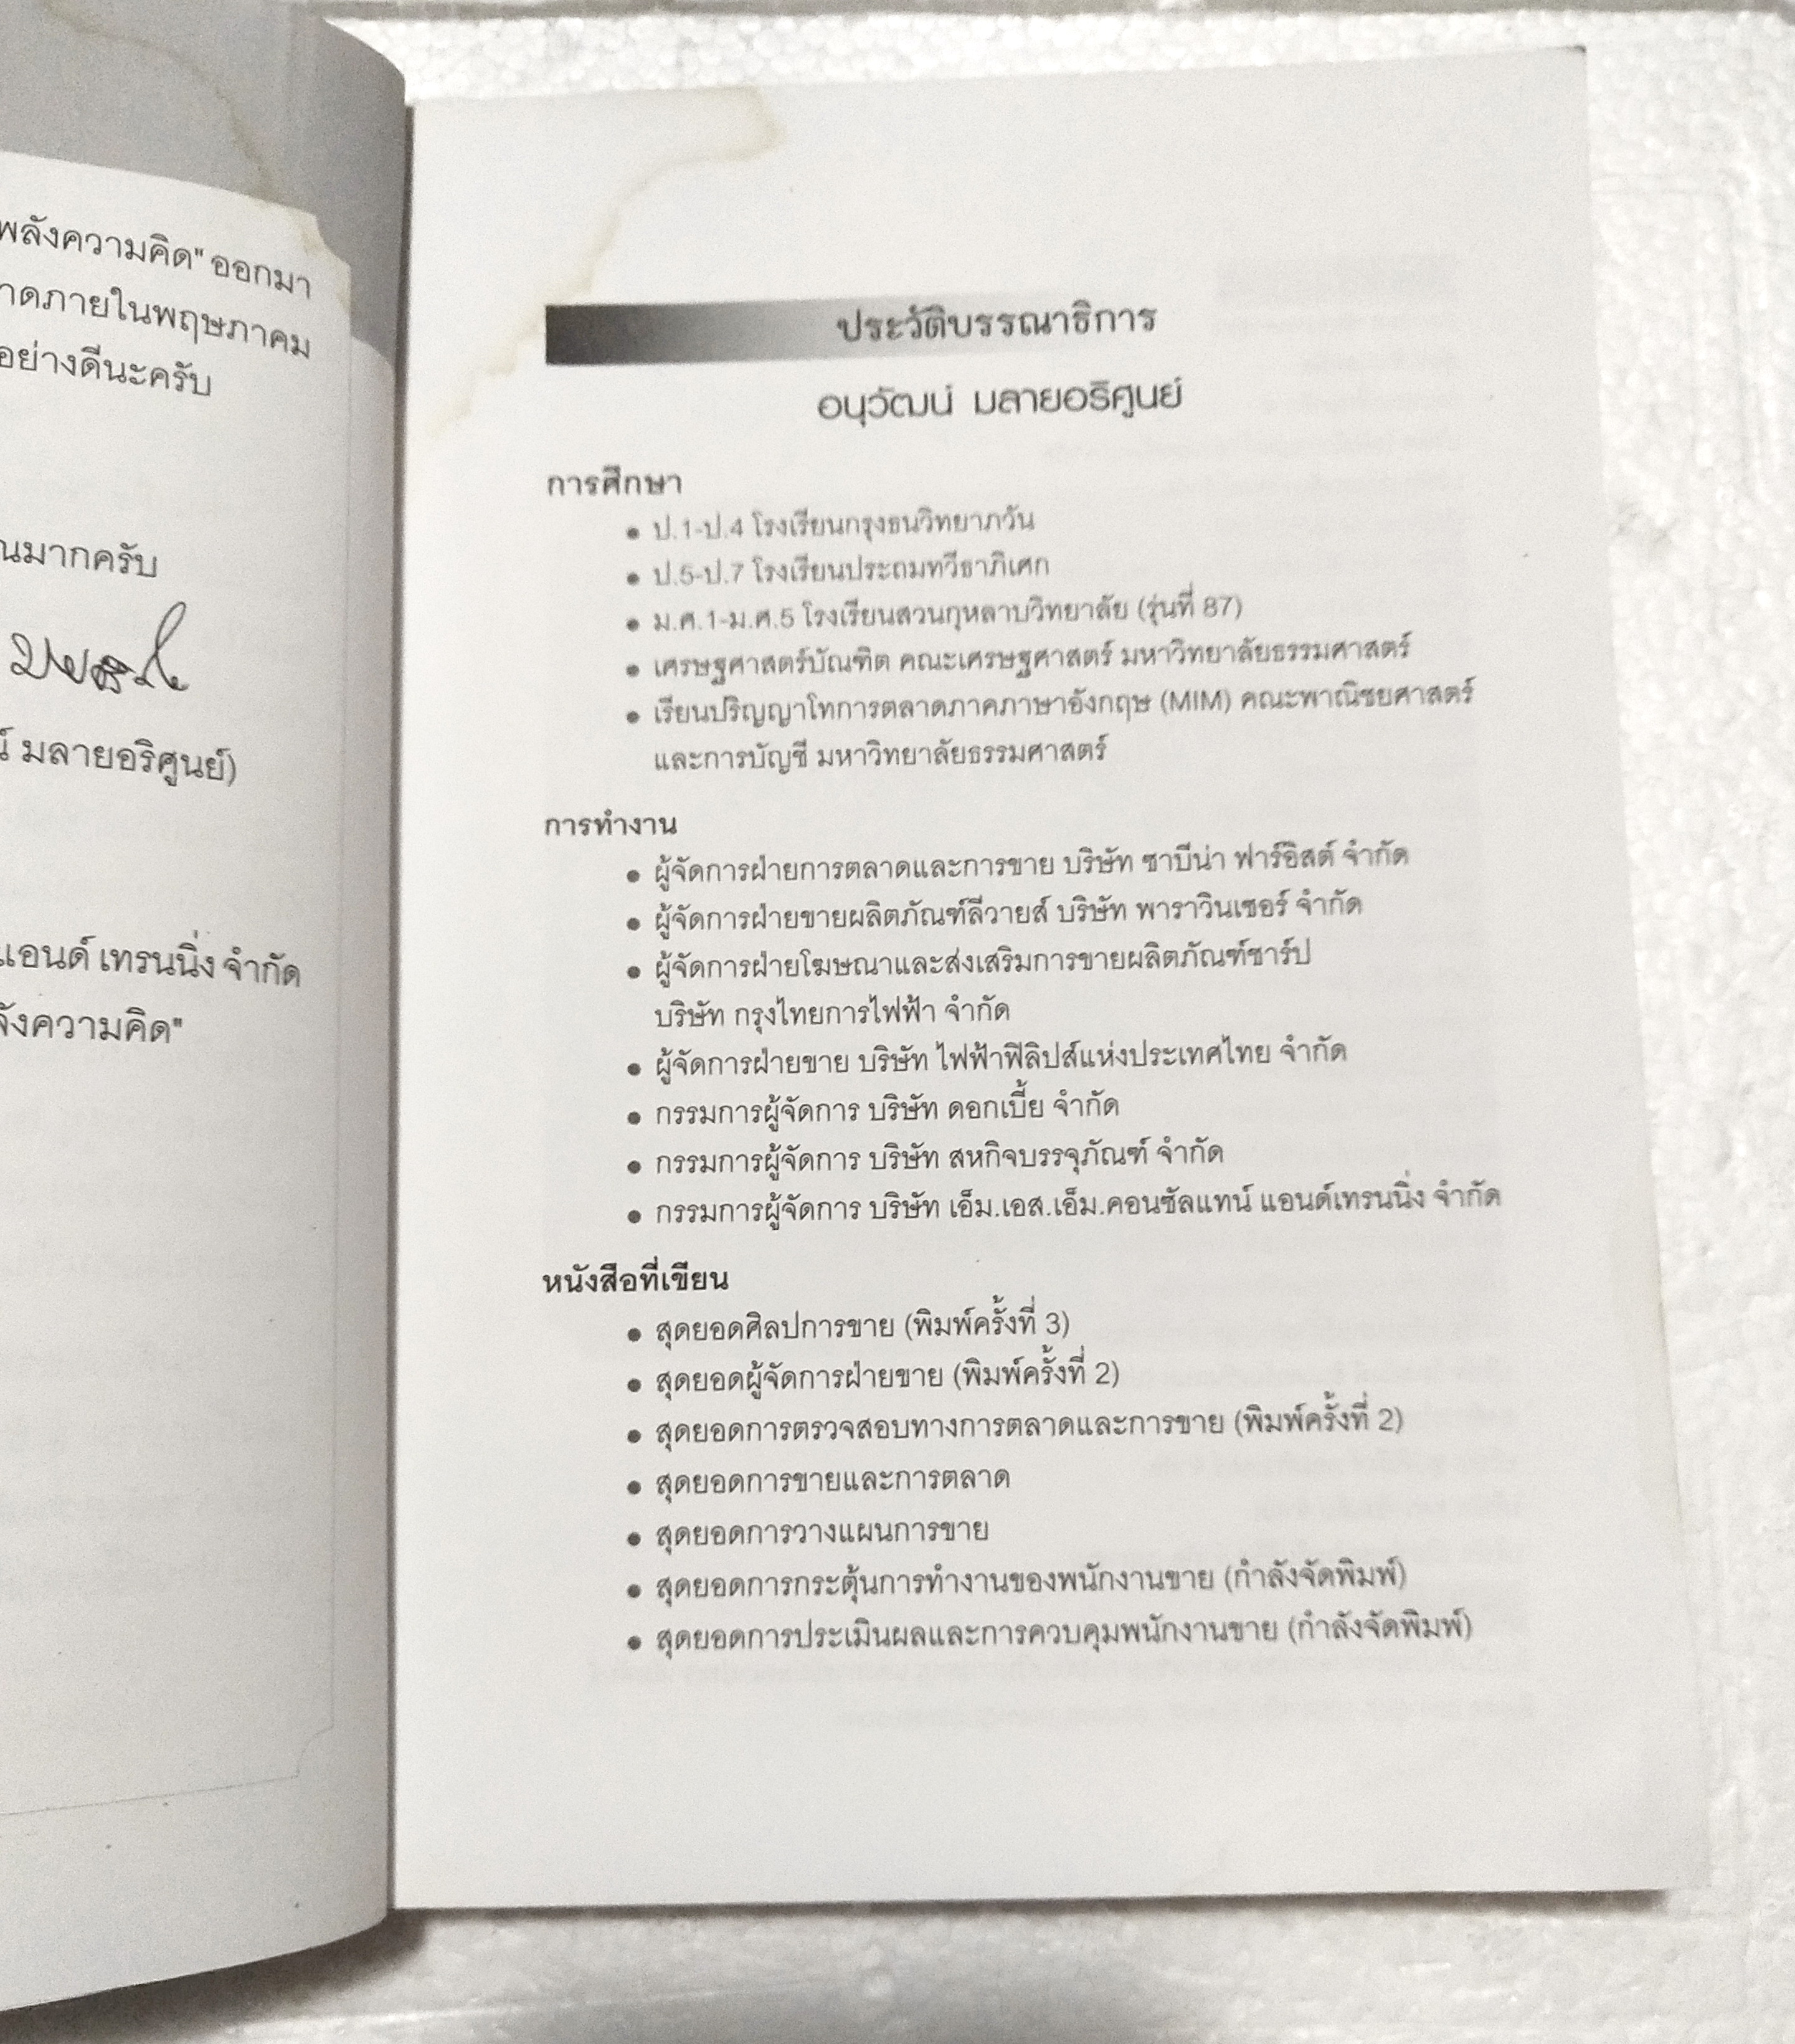 พลังความคิด" ออกมา
าดภายในพฤษภาคม
อย่างดีนะครับ
นมากครับ
น์ มลายอริศูนย์)
แอนด์ เทรนนิ่ง จำกัด
ลังความคิด"
ประวัติบรรณาธิการ
อนุวัฒน์ มลายอริศูนย์
การศึกษา
• ป.1-ป.4 โรงเรียนกรุงธนวิทยาภวัน
• ป.5-ป.7 โรงเรียนประถมทวีธาภิเศก
• ม.ศ.1-ม.ศ.5 โรงเรียนสวนกุหลาบวิทยาลัย (รุ่นที่ 87)
• เศรษฐศาสตร์บัณฑิต คณะเศรษฐศาสตร์ มหาวิทยาลัยธรรมศาสตร์
• เรียนปริญญาโทการตลาดภาคภาษาอังกฤษ (MIM) คณะพาณิชยศาสตร์
และการบัญชี มหาวิทยาลัยธรรมศาสตร์
การทำงาน
• ผู้จัดการฝ่ายการตลาดและการขาย บริษัท ซาบีน่า ฟาร์อีสต์ จำกัด
• ผู้จัดการฝ่ายขายผลิตภัณฑ์ลีวายส์ บริษัท พาราวินเซอร์ จำกัด
• ผู้จัดการฝ่ายโฆษณาและส่งเสริมการขายผลิตภัณฑ์ชาร์ป
บริษัท กรุงไทยการไฟฟ้า จำกัด
• ผู้จัดการฝ่ายขาย บริษัท ไฟฟ้าฟิลิปส์แห่งประเทศไทย จำกัด
• กรรมการผู้จัดการ บริษัท ดอกเบี้ย จำกัด
• กรรมการผู้จัดการ บริษัท สหกิจบรรจุภัณฑ์ จำกัด
• กรรมการผู้จัดการ บริษัท เอ็ม.เอส.เอ็ม.คอนซัลแทน์ แอนด์เทรนนิ่ง จำกัด
หนังสือที่เขียน
• สุดยอดศิลปการขาย (พิมพ์ครั้งที่ 3)
• สุดยอดผู้จัดการฝ่ายขาย (พิมพ์ครั้งที่ 2)
• สุดยอดการตรวจสอบทางการตลาดและการขาย (พิมพ์ครั้งที่ 2)
• สุดยอดการขายและการตลาด
• สุดยอดการวางแผนการขาย
• สุดยอดการกระตุ้นการทำงานของพนักงานขาย (กำลังจัดพิมพ์)
• สุดยอดการประเมินผลและการควบคุมพนักงานขาย (กำลังจัดพิมพ์)